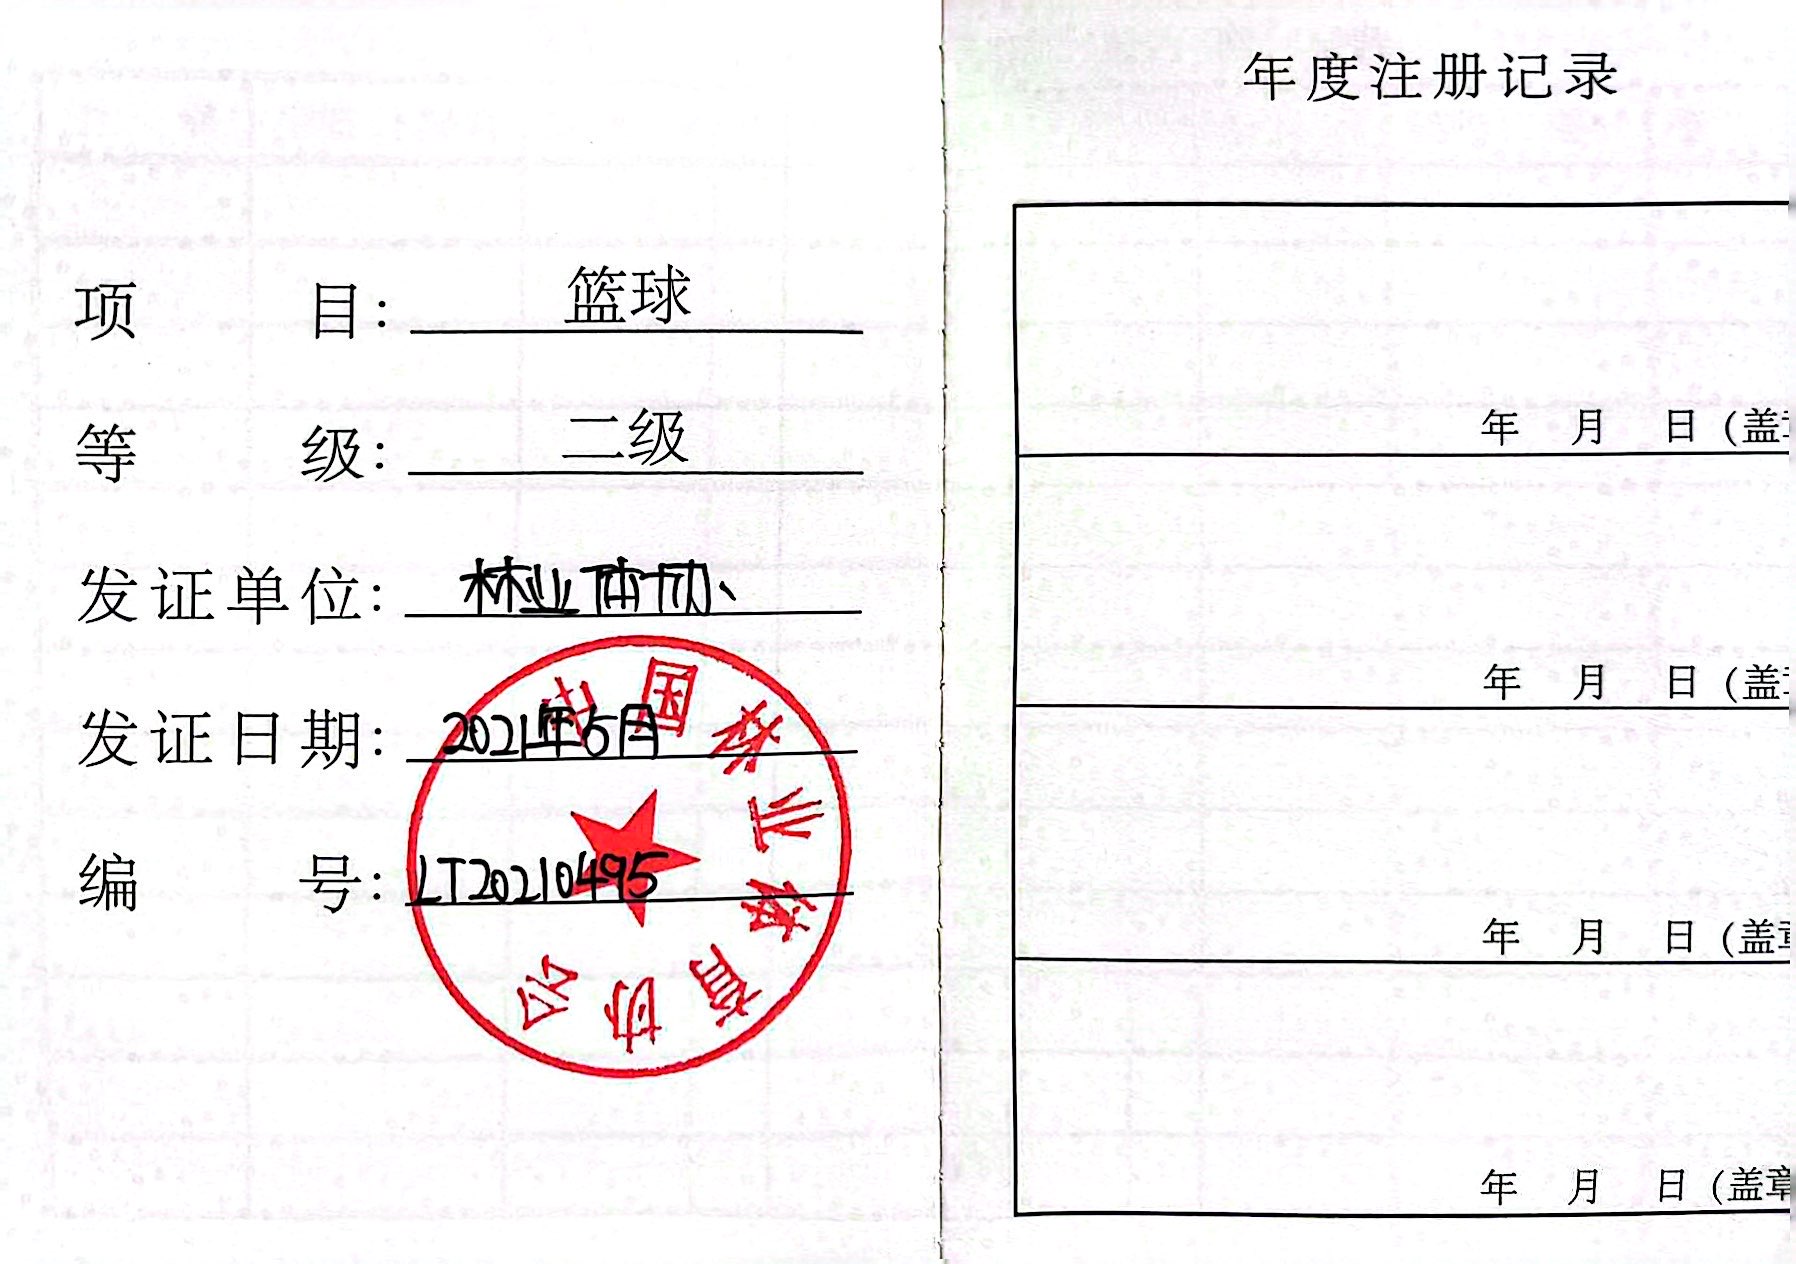 项目：篮球
等级：二级
发证单位：林业体协
发证日期：2021年5月
编号：LT20210495
中国林业体育协会
年度注册记录
年 月 日（盖章
年 月 日（盖章
年 月 日（盖章
年 月 日（盖章